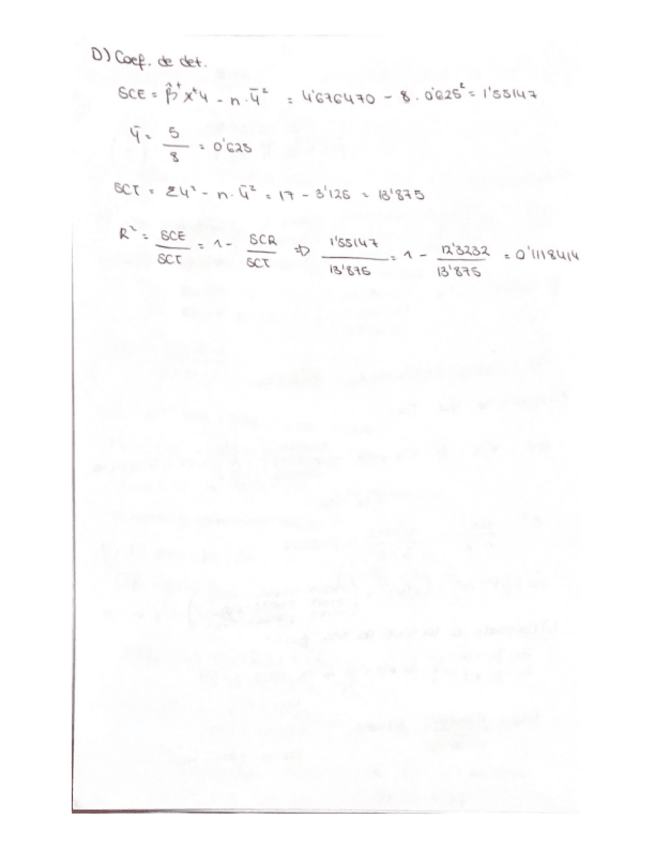 D) Coef. de det.
SCE = β̂ᵗ xᵗ y - n · ȳ² = 4'676470 - 8 · 0'625² = 1'55147
ȳ = 5/8 = 0'625
SCT = Σy² - n · ȳ² = 17 - 3'125 = 13'875
R² = SCE/SCT = 1 - SCR/SCT ⇒ 1'55147/13'875 = 1 - 12'3232/13'875 = 0'1118414